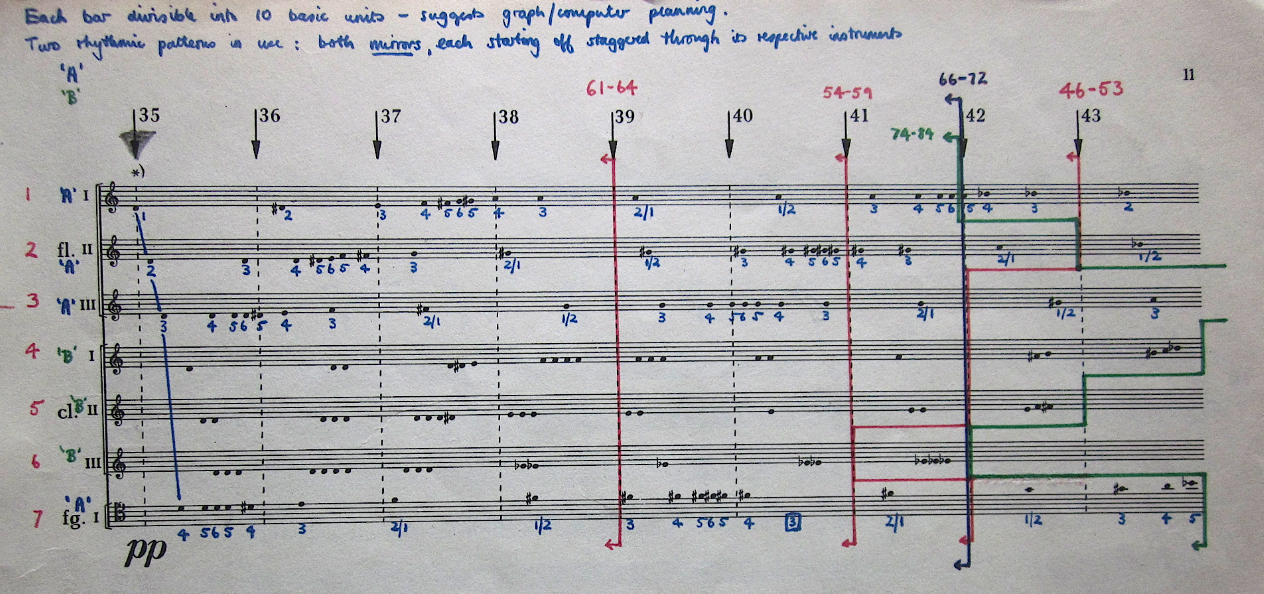 Each bar divisible into 10 basic units – suggests graph/computer planning.
Two rhythmic patterns in use : both mirrors, each starting off staggered through its respective instruments
'A'
'B'
66-72
11
61-64
54-59
46-53
35 36 37 38 39 40 41 42 43
74-84
*)
1 'A' I
1 2 3 4 5 6 5 4 3 2/1 1/2 3 4 5 6 5 4 3 2
2 fl. II
'A'
2 3 4 5 6 5 4 3 2/1 1/2 3 4 5 6 5 4 3 2/1 1/2
3 'A' III
3 4 5 6 5 4 3 2/1 1/2 3 4 5 6 5 4 3 2/1 1/2 3
4 'B' I
5 cl. 'B' II
6 'B' III
7 'A' fg. I
4 5 6 5 4 3 2/1 1/2 3 4 5 6 5 4 3 2/1 1/2 3 4 5
pp